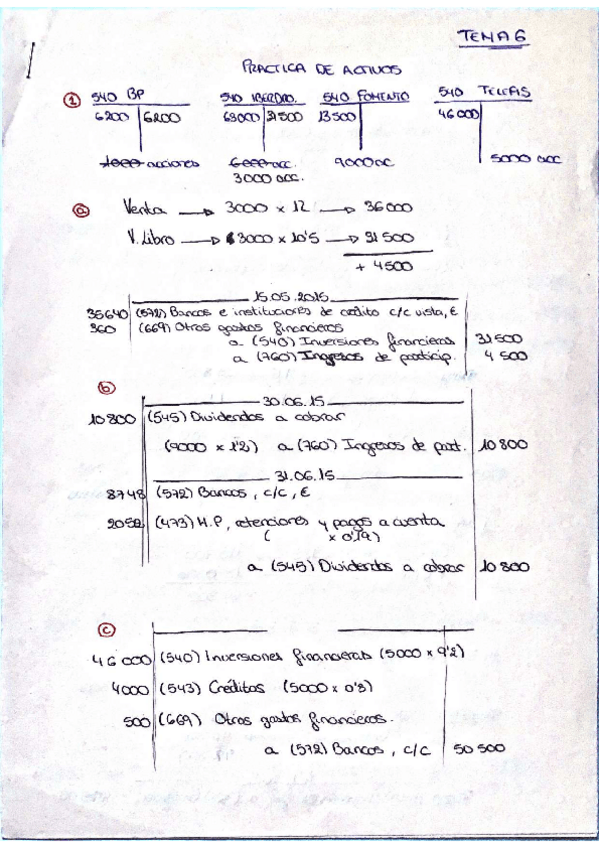 TEMA 6
PRACTICA DE ACTIVOS
1 540 BP 540 IBERDRO. 540 FOMENTO 540 TELEFAS
6200 6200 63000 31500 13500 46000
1000 acciones 6000 acc. 9000 ac 5000 acc
3000 acc.
a Venta → 3000 x 12 → 36000
V. Libro → 3000 x 10'5 → 31500
+ 4500
15.05.2015
35640 (572) Bancos e instituciones de crédito c/c vista, €
360 (669) Otros gastos financieros
a (540) Inversiones financieras 31500
a (760) Ingresos de particip. 4500
b
30.06.15
10800 (545) Dividendos a cobrar
(9000 x 1'2) a (760) Ingresos de part. 10800
31.06.15
8748 (572) Bancos, c/c, €
2052 (473) H.P, retenciones y pagos a cuenta
( x 0'19)
a (545) Dividendos a cobrar 10800
c
46000 (540) Inversiones financieras (5000 x 9'2)
4000 (543) Créditos (5000 x 0'8)
500 (669) Otros gastos financieros.
a (572) Bancos, c/c 50500